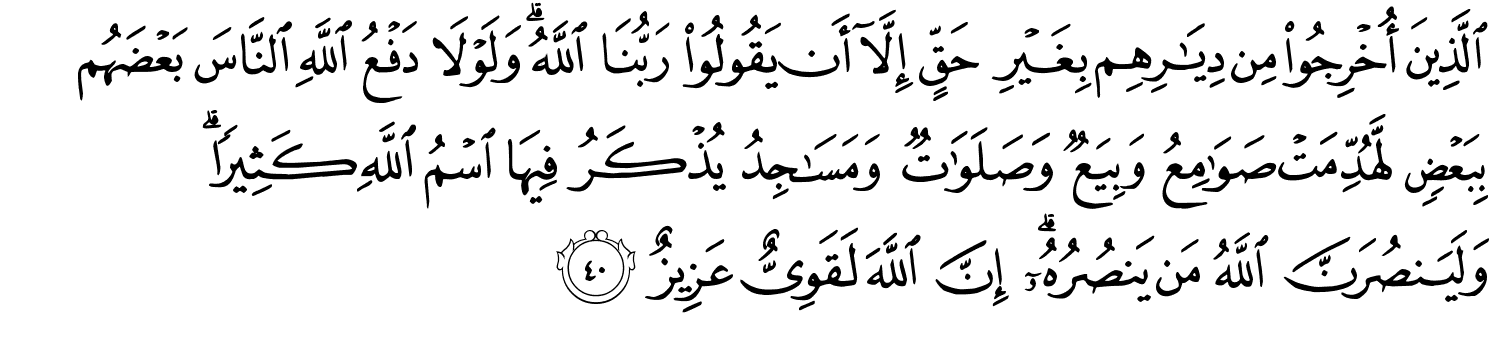 ٱلَّذِينَ أُخْرِجُوا۟ مِن دِيَـٰرِهِم بِغَيْرِ حَقٍّ إِلَّآ أَن يَقُولُوا۟ رَبُّنَا ٱللَّهُ ۗ وَلَوْلَا دَفْعُ ٱللَّهِ ٱلنَّاسَ بَعْضَهُم
بِبَعْضٍ لَّهُدِّمَتْ صَوَٰمِعُ وَبِيَعٌ وَصَلَوَٰتٌ وَمَسَـٰجِدُ يُذْكَرُ فِيهَا ٱسْمُ ٱللَّهِ كَثِيرًا ۗ
وَلَيَنصُرَنَّ ٱللَّهُ مَن يَنصُرُهُۥٓ ۗ إِنَّ ٱللَّهَ لَقَوِىٌّ عَزِيزٌ ٤٠